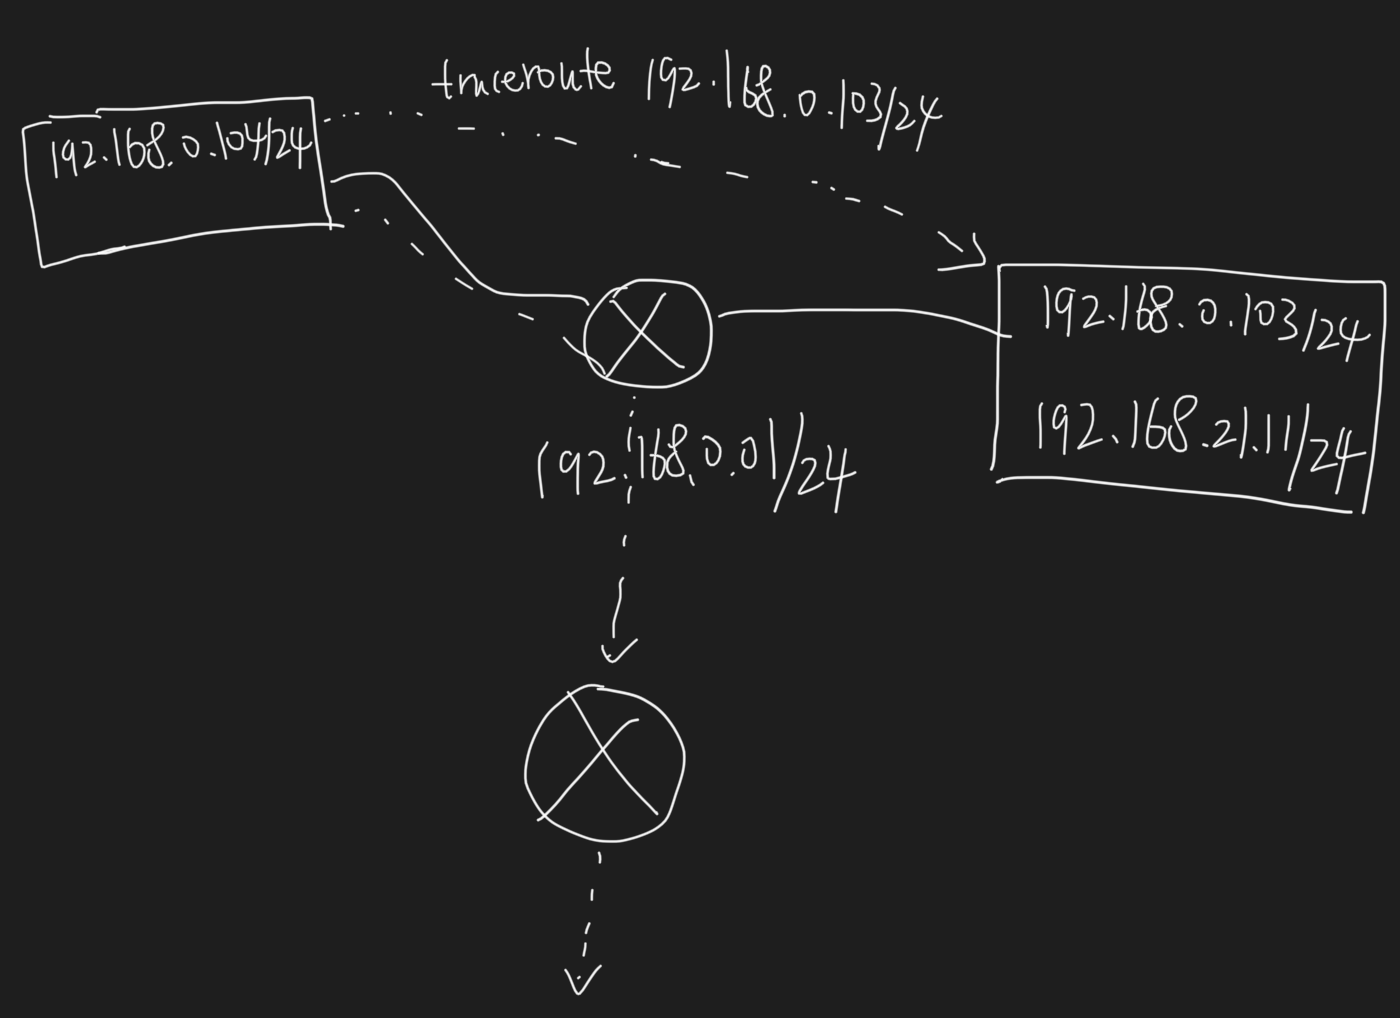 traceroute 192.168.0.103/24
192.168.0.104/24
192.168.0.103/24
192.168.21.11/24
192.168.0.01/24